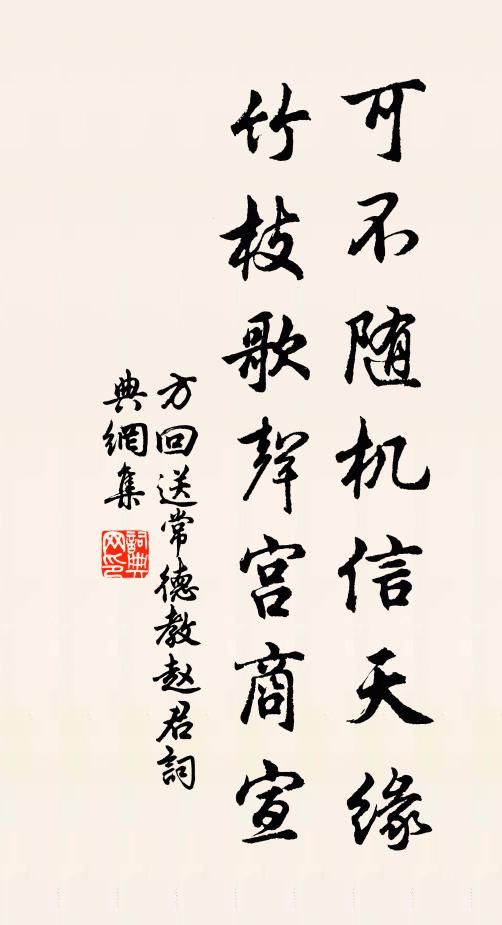 可不随机信天缘
竹枝歌聲宫商宣
方回送常德教赵君詞
典網集
詞典网印